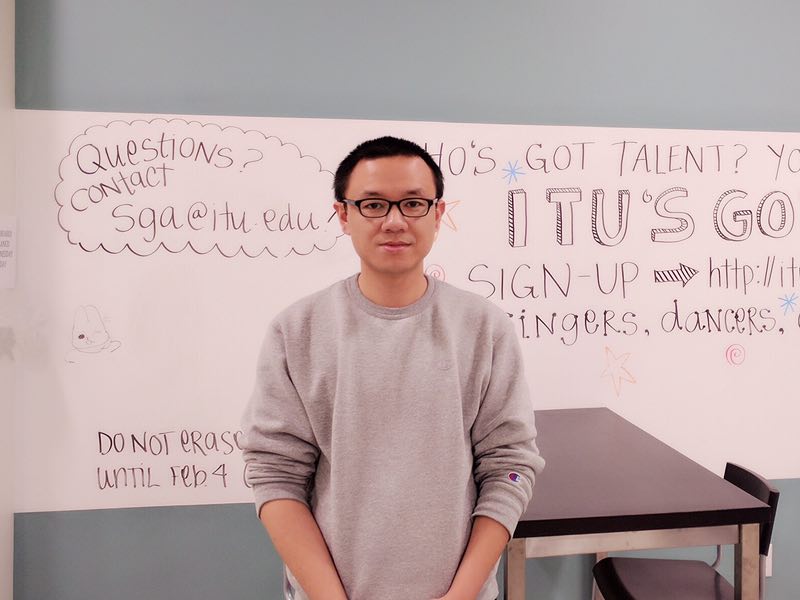 Questions?
contact
sga@itu.edu!
HO'S GOT TALENT? YO
ITU'S GO
SIGN-UP http://it
singers, dancers,
DO NOT erase
UNTIL Feb. 4